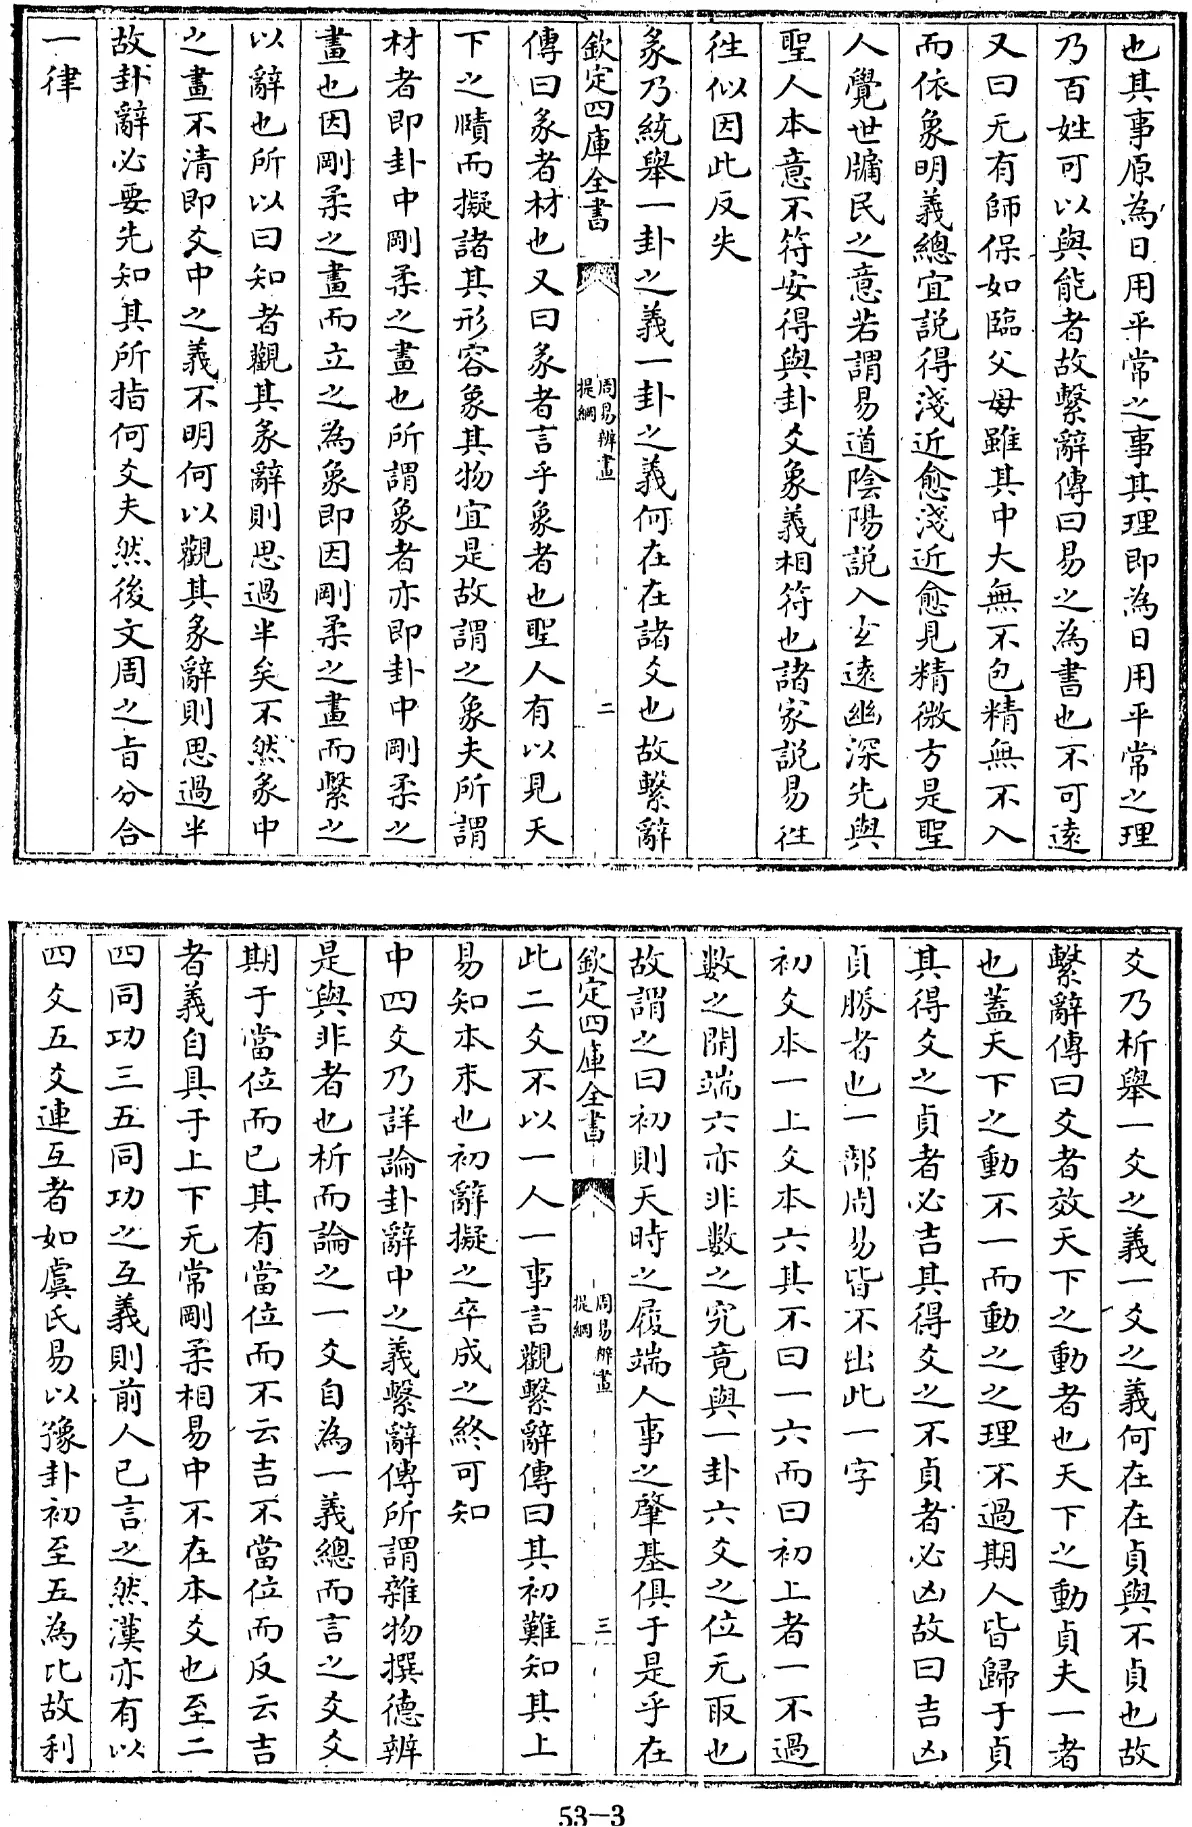 也其事原為日用平常之事其理即為日用平常之理
乃百姓可以與能者故繫辭傳曰易之為書也不可遠
又曰无有師保如臨父母雖其中大無不包精無不入
而依象明義總宜說得淺近愈淺近愈見精微方是聖
人覺世牖民之意若謂易道陰陽說入玄遠幽深先與
聖人本意不符安得與卦爻象義相符也諸家說易往
往似因此反失
彖乃統舉一卦之義一卦之義何在在諸爻也故繫辭
欽定四庫全書
周易辨畫
提綱
二
傳曰彖者材也又曰彖者言乎象者也聖人有以見天
下之賾而擬諸其形容象其物宜是故謂之象夫所謂
材者即卦中剛柔之畫也所謂象者亦即卦中剛柔之
畫也因剛柔之畫而立之為象即因剛柔之畫而繫之
以辭也所以曰知者觀其彖辭則思過半矣不然彖中
之畫不清即爻中之義不明何以觀其彖辭則思過半
故卦辭必要先知其所指何爻夫然後文周之旨分合
一律
爻乃析舉一爻之義一爻之義何在在貞與不貞也故
繫辭傳曰爻者效天下之動者也天下之動貞夫一者
也蓋天下之動不一而動之之理不過期人皆歸于貞
其得爻之貞者必吉其得爻之不貞者必凶故曰吉凶
貞勝者也一部周易皆不出此一字
初爻本一上爻本六其不曰一六而曰初上者一不過
數之開端六亦非數之究竟與一卦六爻之位无取也
故謂之曰初則天時之履端人事之肇基俱于是乎在
欽定四庫全書
周易辨畫
提綱
三
此二爻不以一人一事言觀繫辭傳曰其初難知其上
易知本末也初辭擬之卒成之終可知
中四爻乃詳論卦辭中之義繫辭傳所謂雜物撰德辨
是與非者也析而論之一爻自為一義總而言之爻爻
期于當位而已其有當位而不云吉不當位而反云吉
者義自具于上下无常剛柔相易中不在本爻也至二
四同功三五同功之互義則前人已言之然漢亦有以
四爻五爻連互者如虞氏易以豫卦初至五為比故利
53-3